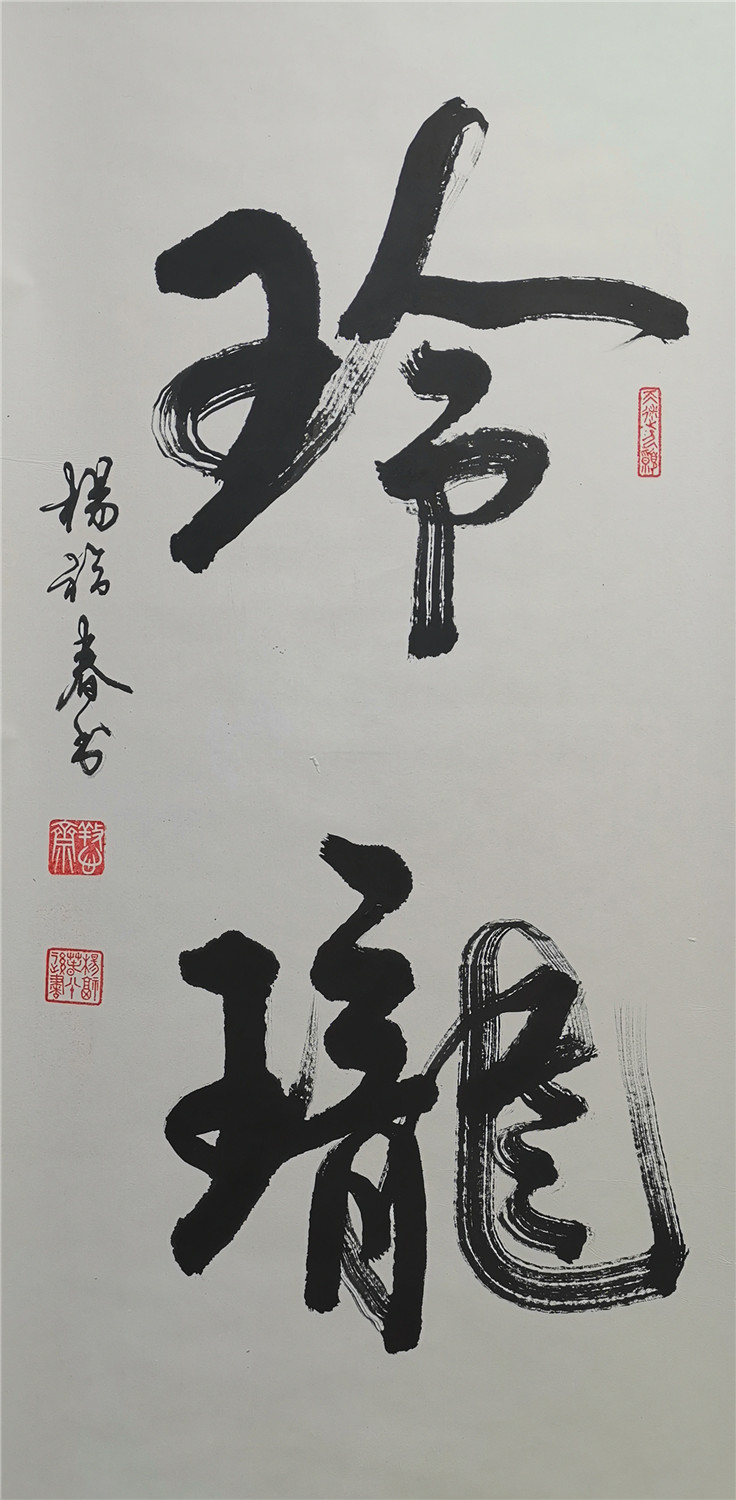 玲瓏
楊福春书